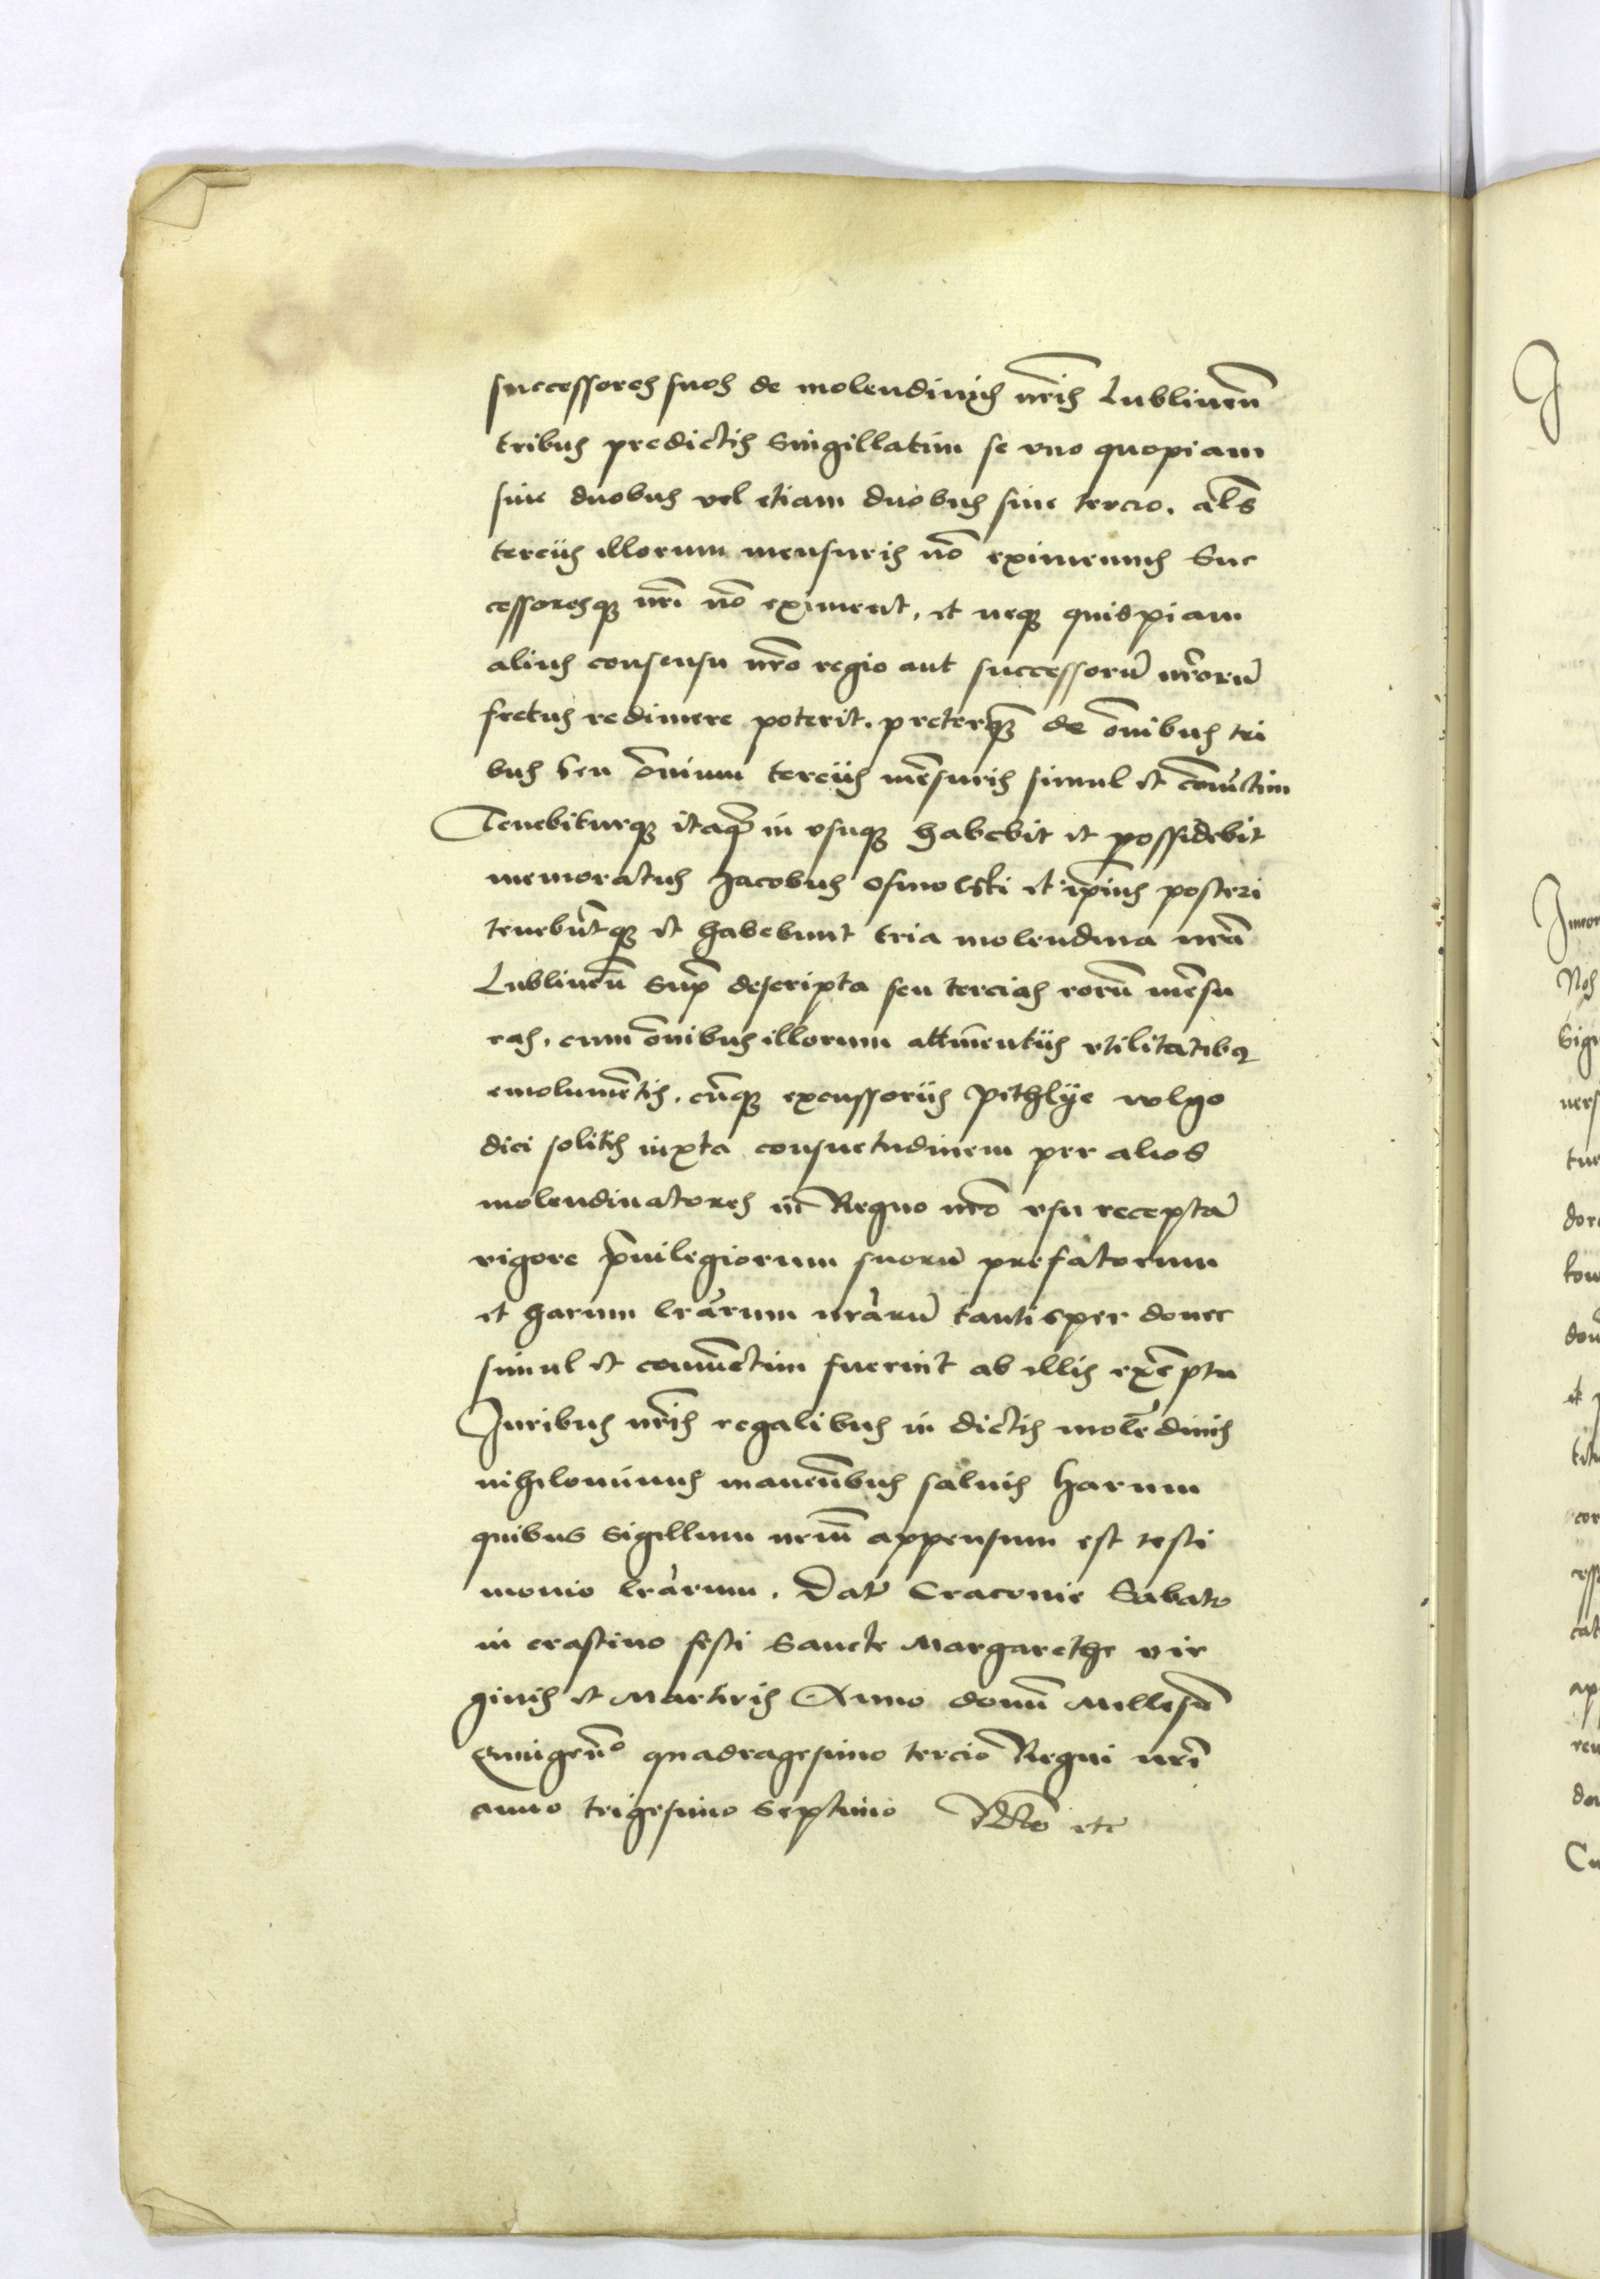 successores suos de molendinis nr̃is Lublineñ
tribus predictis Singillatim se vno quopiam
sine duobus vel etiam duobus sine tercio. al̃s
tercijs illorum mensuris nõ eximemus Suc
cessoresq3 nr̃i nõ eximent, et neq3 quispiam
alius consensu nr̃o regio aut successorũ nr̃orũ
fretus redimere poterit. preterq̃3 de om̃ibus tri
bus seu om̃ium tercijs mẽsuris simul et coniũctim
Tenebiturq3 itaq3 in vsuq3 habebit et possidebit
memoratus Jacobus osmolski et ip̃ius posteri
tenebũtq3 et habebunt tria molendina nr̃a
Lublineñ Sup̃ descripta seu tercias eorũ mẽsu
ras, cum om̃ibus illorum attinentijs vtilitatibq3
emolumẽtis, cũq3 excussorijs pithlye wlgo
dici solitis iuxta consuetudinem per alios
molendinatores in Regno nr̃o vsu receptã
vigore p̃uilegiorum suorũ prefatorum
et harum lr̃arum nr̃arũ tantisper donec
simul et coniũctim fuerint ab illis exẽpta
Juribus nr̃is regalibus in dictis molẽdinis
nihilominus maneñbus saluis harum
quibus Sigillum nr̃um appensum est testi
monio lr̃arum. Dat̃ Cracouie Sabato
in crastino festi Sancte Margarethe vir
ginis et Martiris Anno domĩ Millesĩo
Quingeñº quadragesimo tercio Regni nr̃i
anno trigesimo Septimo Rel̃o etc̃